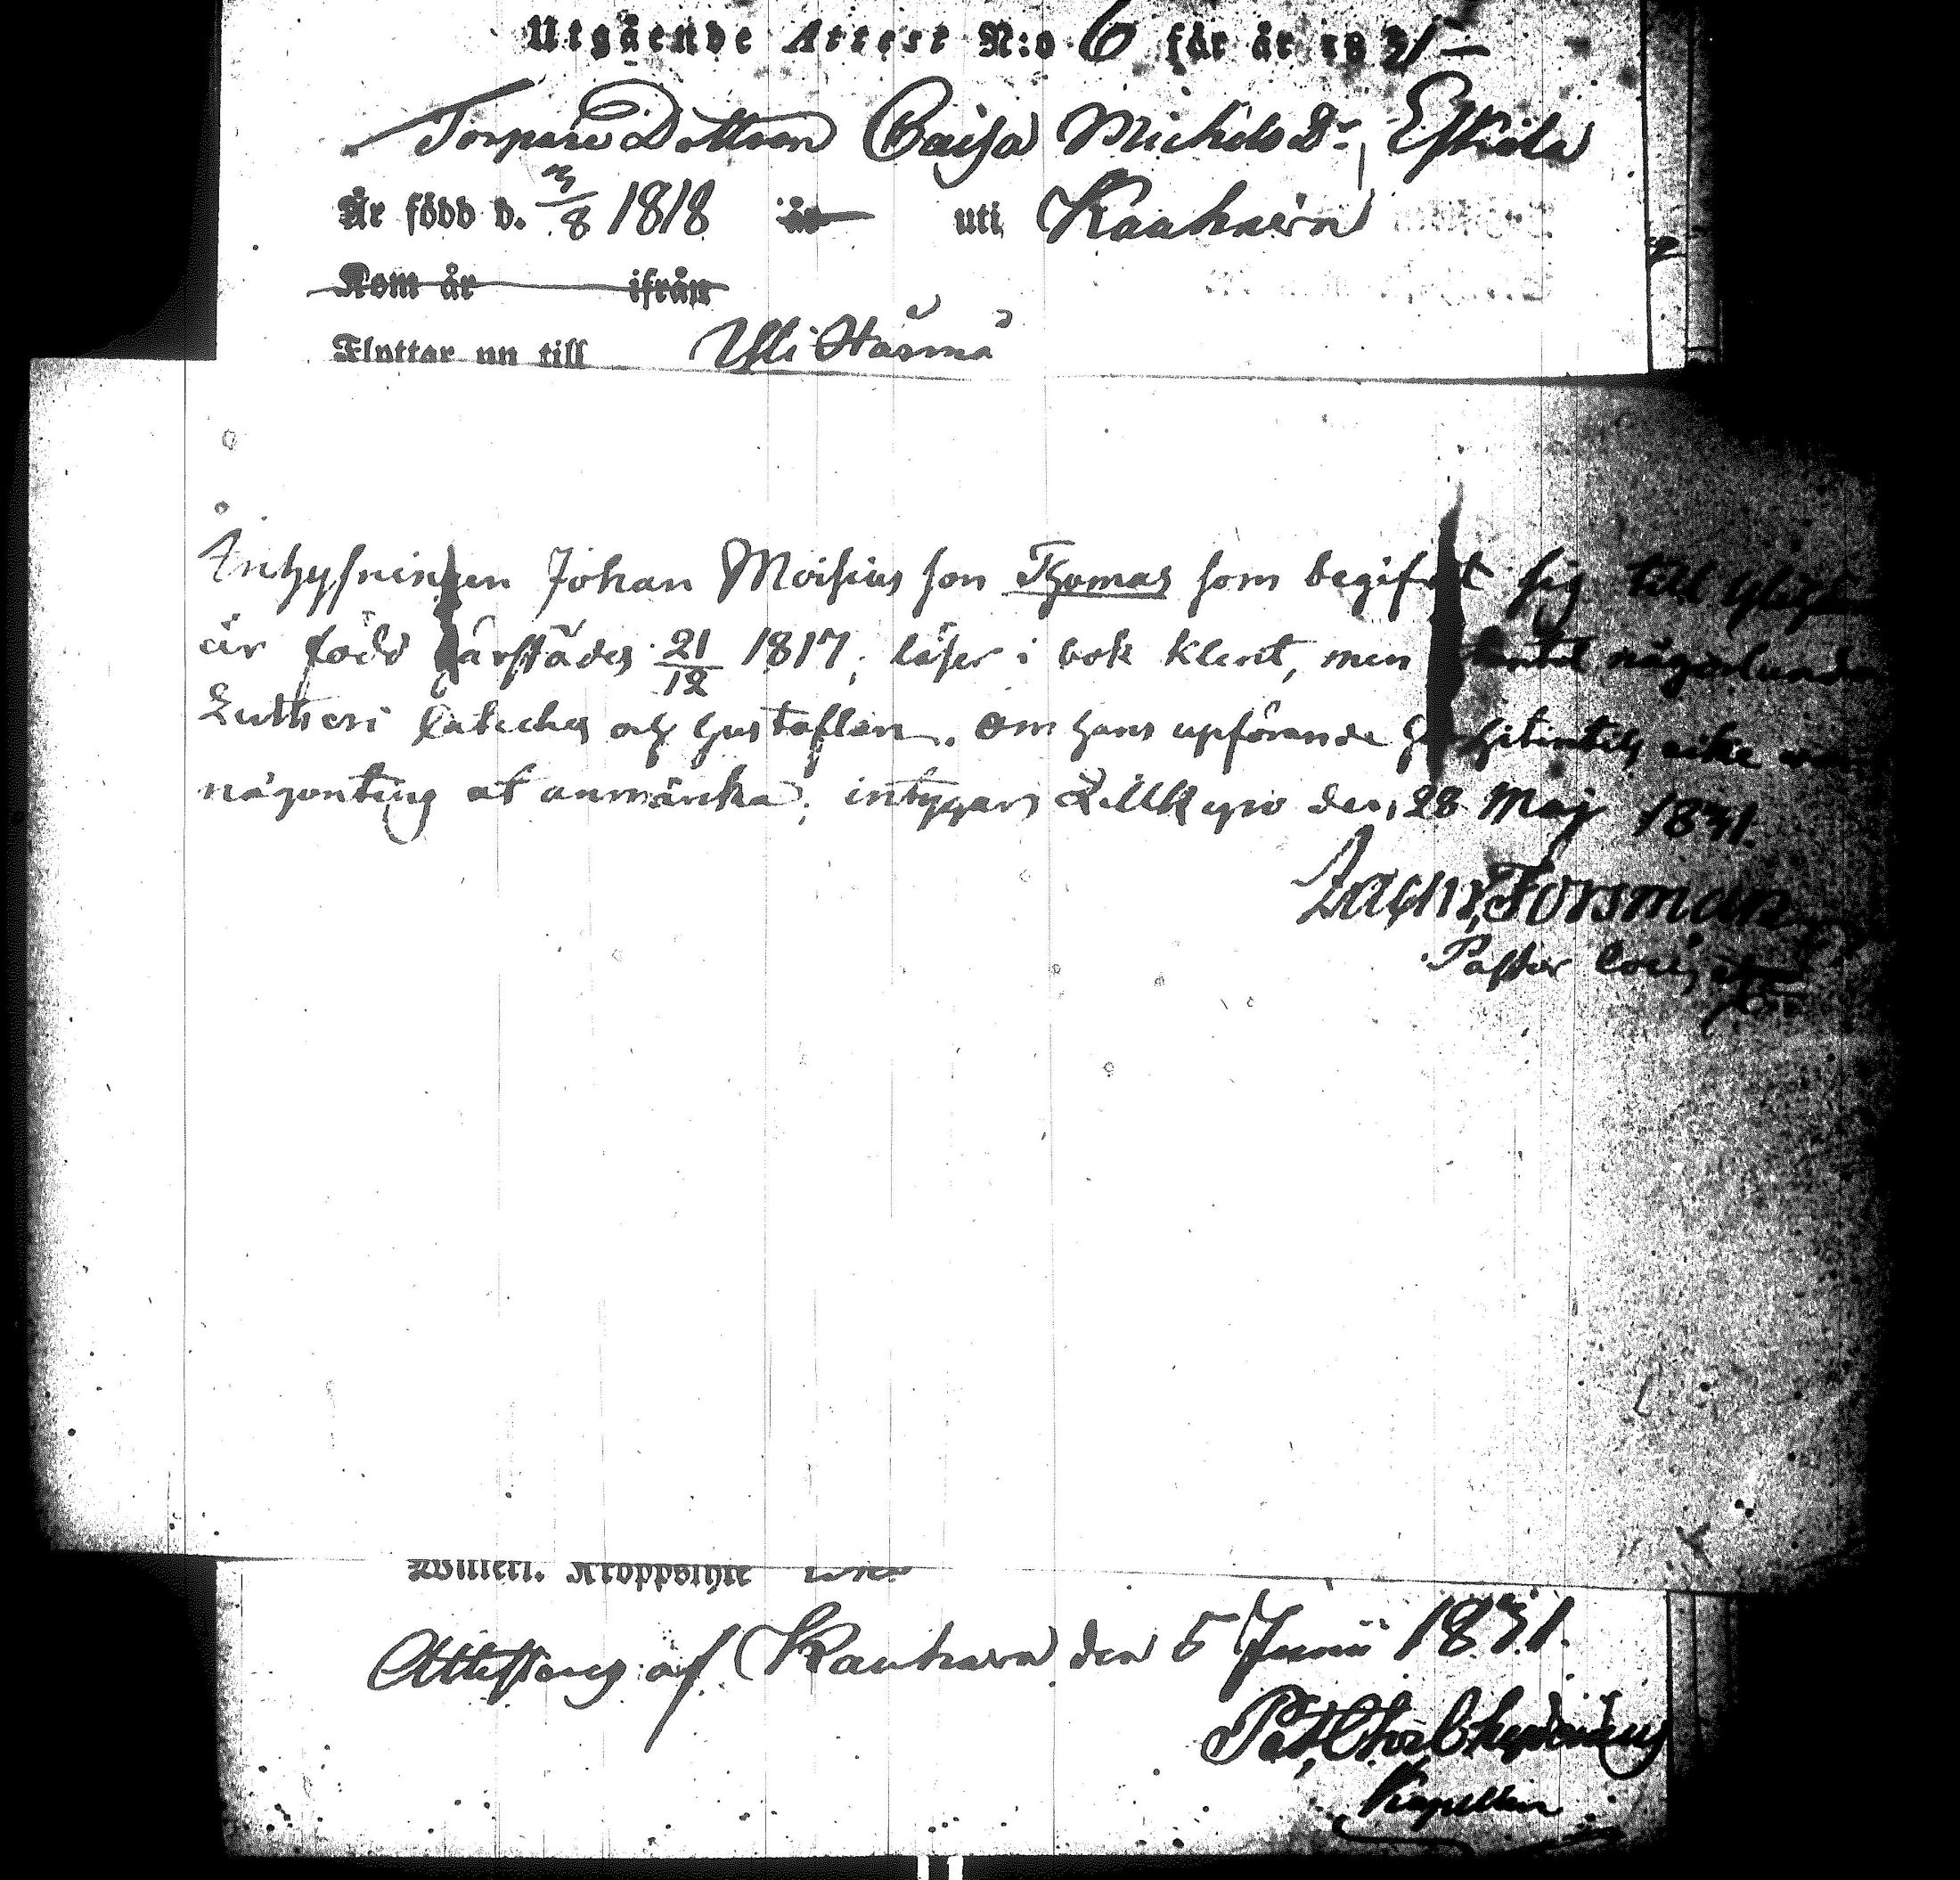 Utgående Attest N:o 6 för år 1831
Torpare Dottren Caisa Michels Dr, Eskila
Är född d. 3/8 1818 år uti Kauhava
Kom år ifrån
Flyttar nu till Ylihärmä
Inhysningen Johan Moisius son Thomas som begifvit sig till
är född härstädes 21/12 1817, läser i bok klent, men någorlunda
Lutheri Cateches och Hustaflan. Om hans upförande härtills icke
någonting at anmärka; intygar Lillkyro den 28 Maj 1831.
Zachr Forsman
Pastor
Kroppslyte
Attesteras af Kauhava den 5 Junii 1831.
Kapellan